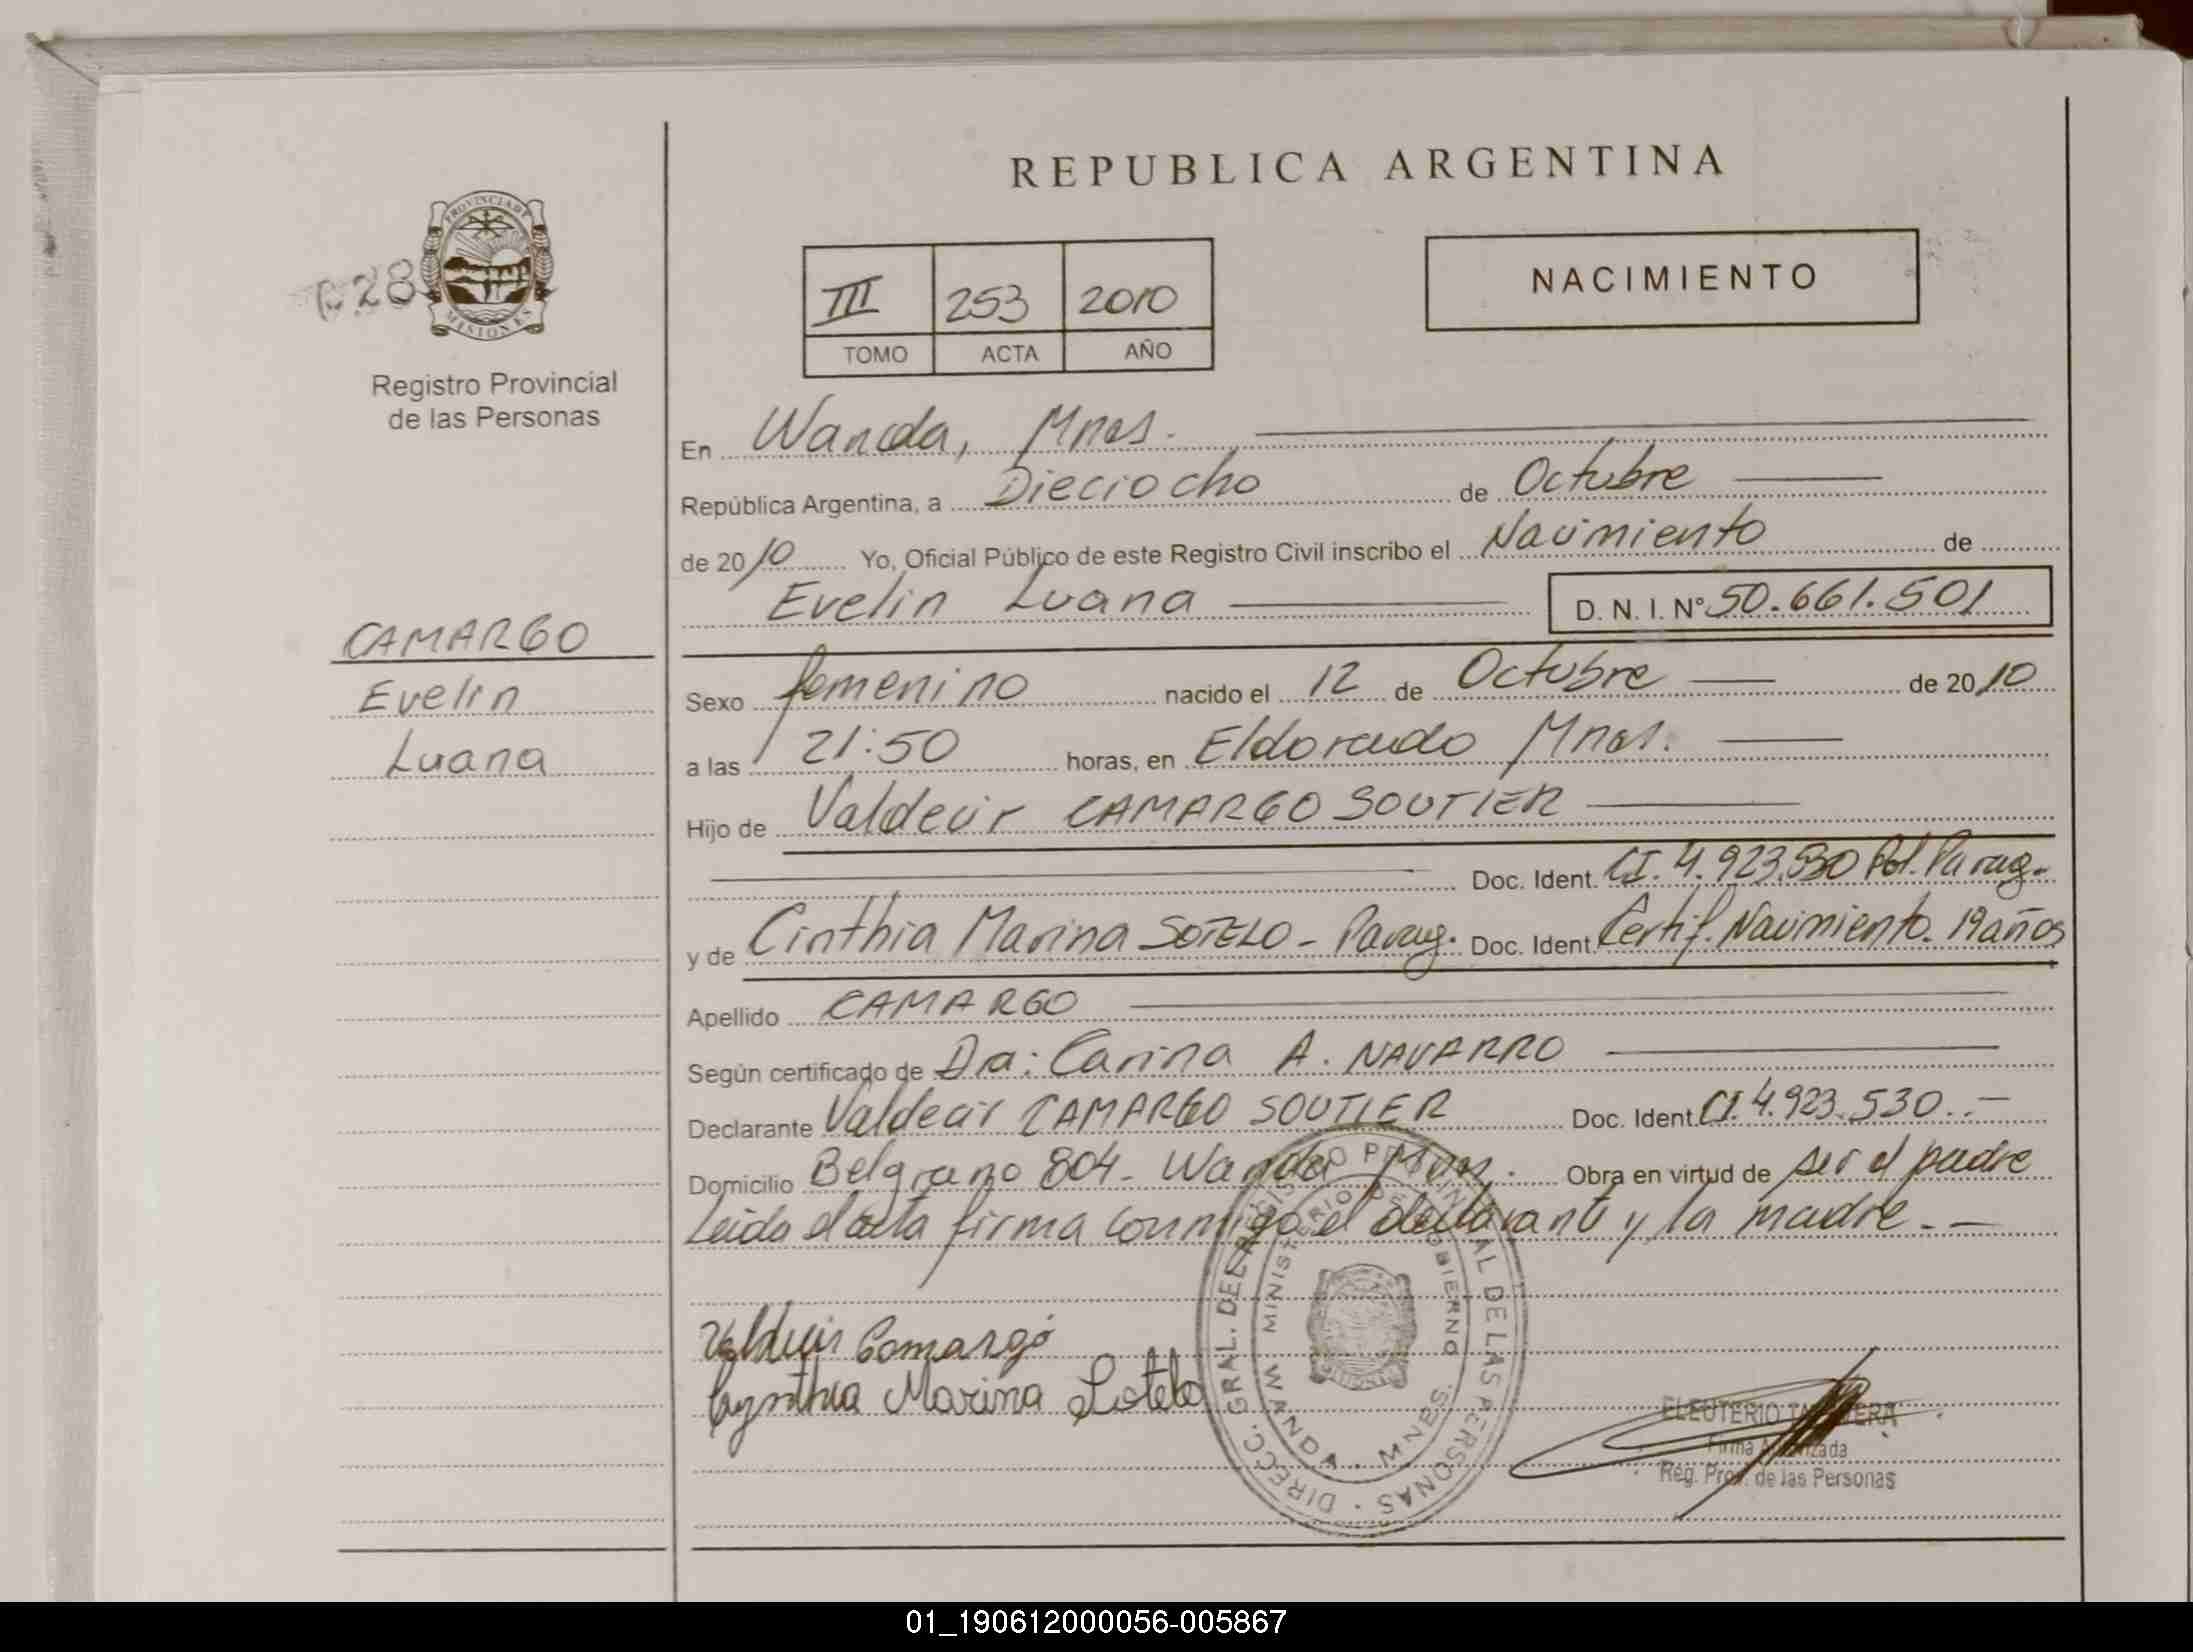 REPUBLICA ARGENTINA
PROVINCIA DE
MISIONES
28
Registro Provincial
de las Personas
III 253 2010
TOMO ACTA AÑO
NACIMIENTO
En Wanda, Mnes.
República Argentina, a Dieciocho de Octubre
de 2010 Yo, Oficial Público de este Registro Civil inscribo el Nacimiento de
Evelin Luana D. N. I. N° 50.661.501
CAMARGO
Evelin
Luana
Sexo femenino nacido el 12 de Octubre de 2010
a las 21:50 horas, en Eldorado Mnes.
Hijo de Valdecir CAMARGO SOUTIER
Doc. Ident. CI. 4.923.530 Pol. Parag.
y de Cinthia Marina SOTELO - Parag. Doc. Ident. Certif. Nacimiento. 19 años
Apellido CAMARGO
Según certificado de Dra: Carina A. NAVARRO
Declarante Valdecir CAMARGO SOUTIER Doc. Ident. CI. 4.923.530.-
Domicilio Belgrano 804 - Wanda Mnes. Obra en virtud de ser el padre
Leida el acta firma conmigo el declarante y la madre.-
Camargo
Cynthia Marina Sotelo
DIRECC. GRAL. DEL REGISTRO PROVINCIAL DE LAS PERSONAS
MINISTERIO DE GOBIERNO
WANDA - MNES.
ELEUTERIO
Firma Autorizada
Reg. Prov. de las Personas
01_190612000056-005867